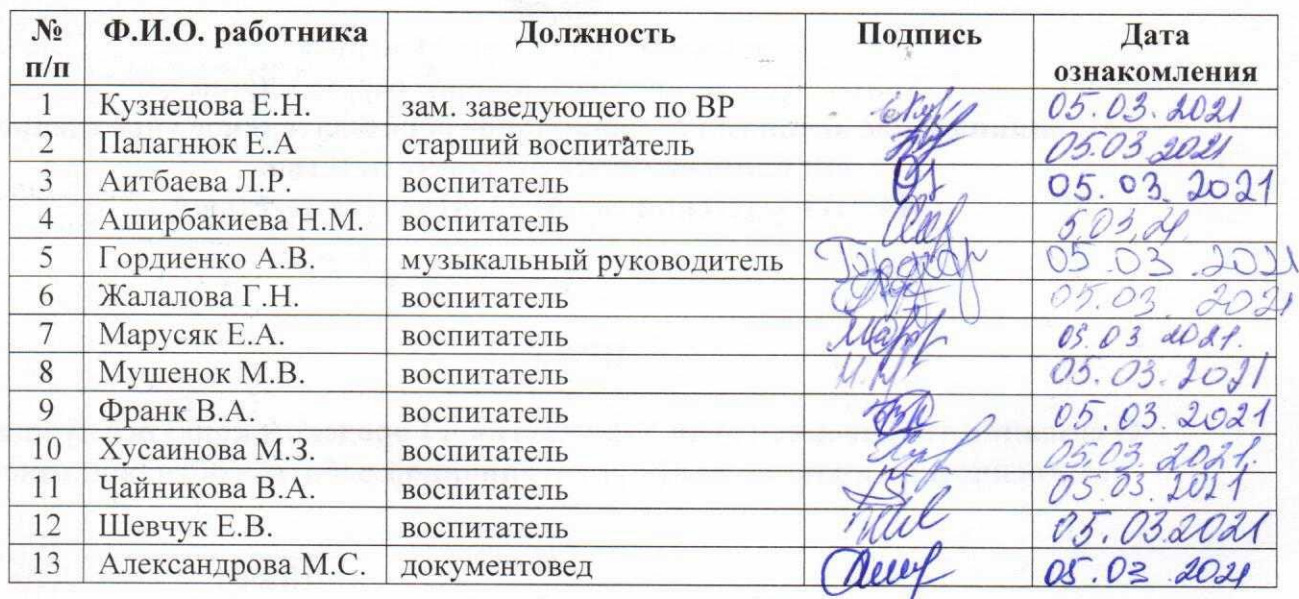 № п/п Ф.И.О. работника Должность Подпись Дата ознакомления
1 Кузнецова Е.Н. зам. заведующего по ВР 05.03.2021
2 Палагнюк Е.А старший воспитатель 05.03.2021
3 Аитбаева Л.Р. воспитатель 05.03.2021
4 Аширбакиева Н.М. воспитатель 5.03.21.
5 Гордиенко А.В. музыкальный руководитель 05.03.2021
6 Жалалова Г.Н. воспитатель 05.03.2021
7 Марусяк Е.А. воспитатель 05.03 2021.
8 Мушенок М.В. воспитатель 05.03.2021
9 Франк В.А. воспитатель 05.03.2021
10 Хусаинова М.З. воспитатель 05.03.2021.
11 Чайникова В.А. воспитатель 05.03.2021
12 Шевчук Е.В. воспитатель 05.03.2021
13 Александрова М.С. документовед 05.03.2021